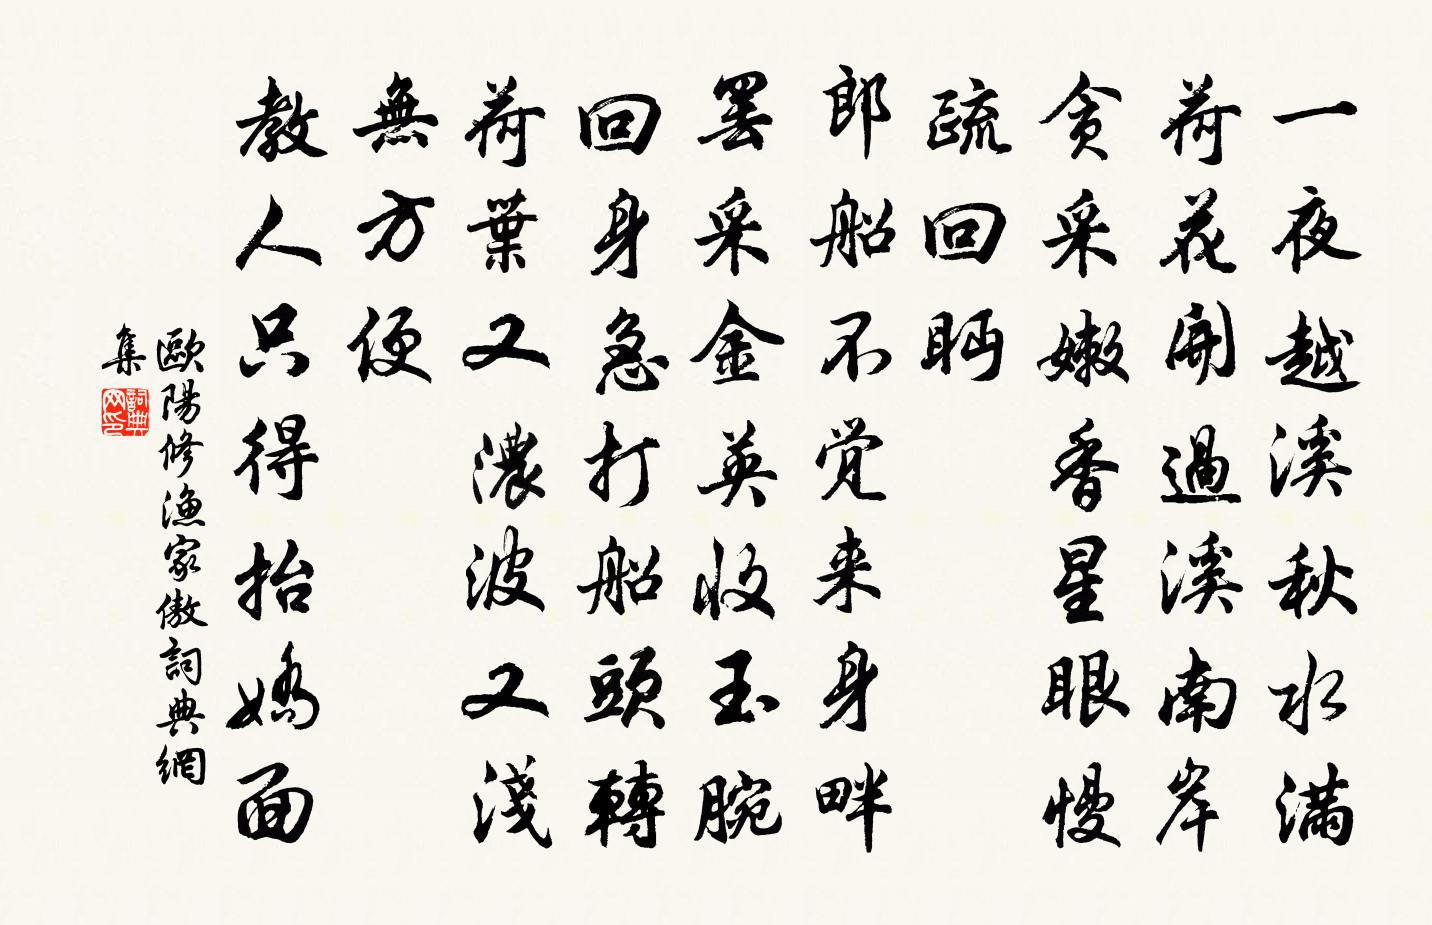 一夜越溪秋水滿
荷花開過溪南岸
貪采嫩香星眼慢
疏回眄
郎船不觉来身畔
罢采金英收玉腕
回身急打船頭轉
荷葉又濃波又淺
無方便
教人只得抬嬌面
歐陽修漁家傲詞典網
集
詞典網印